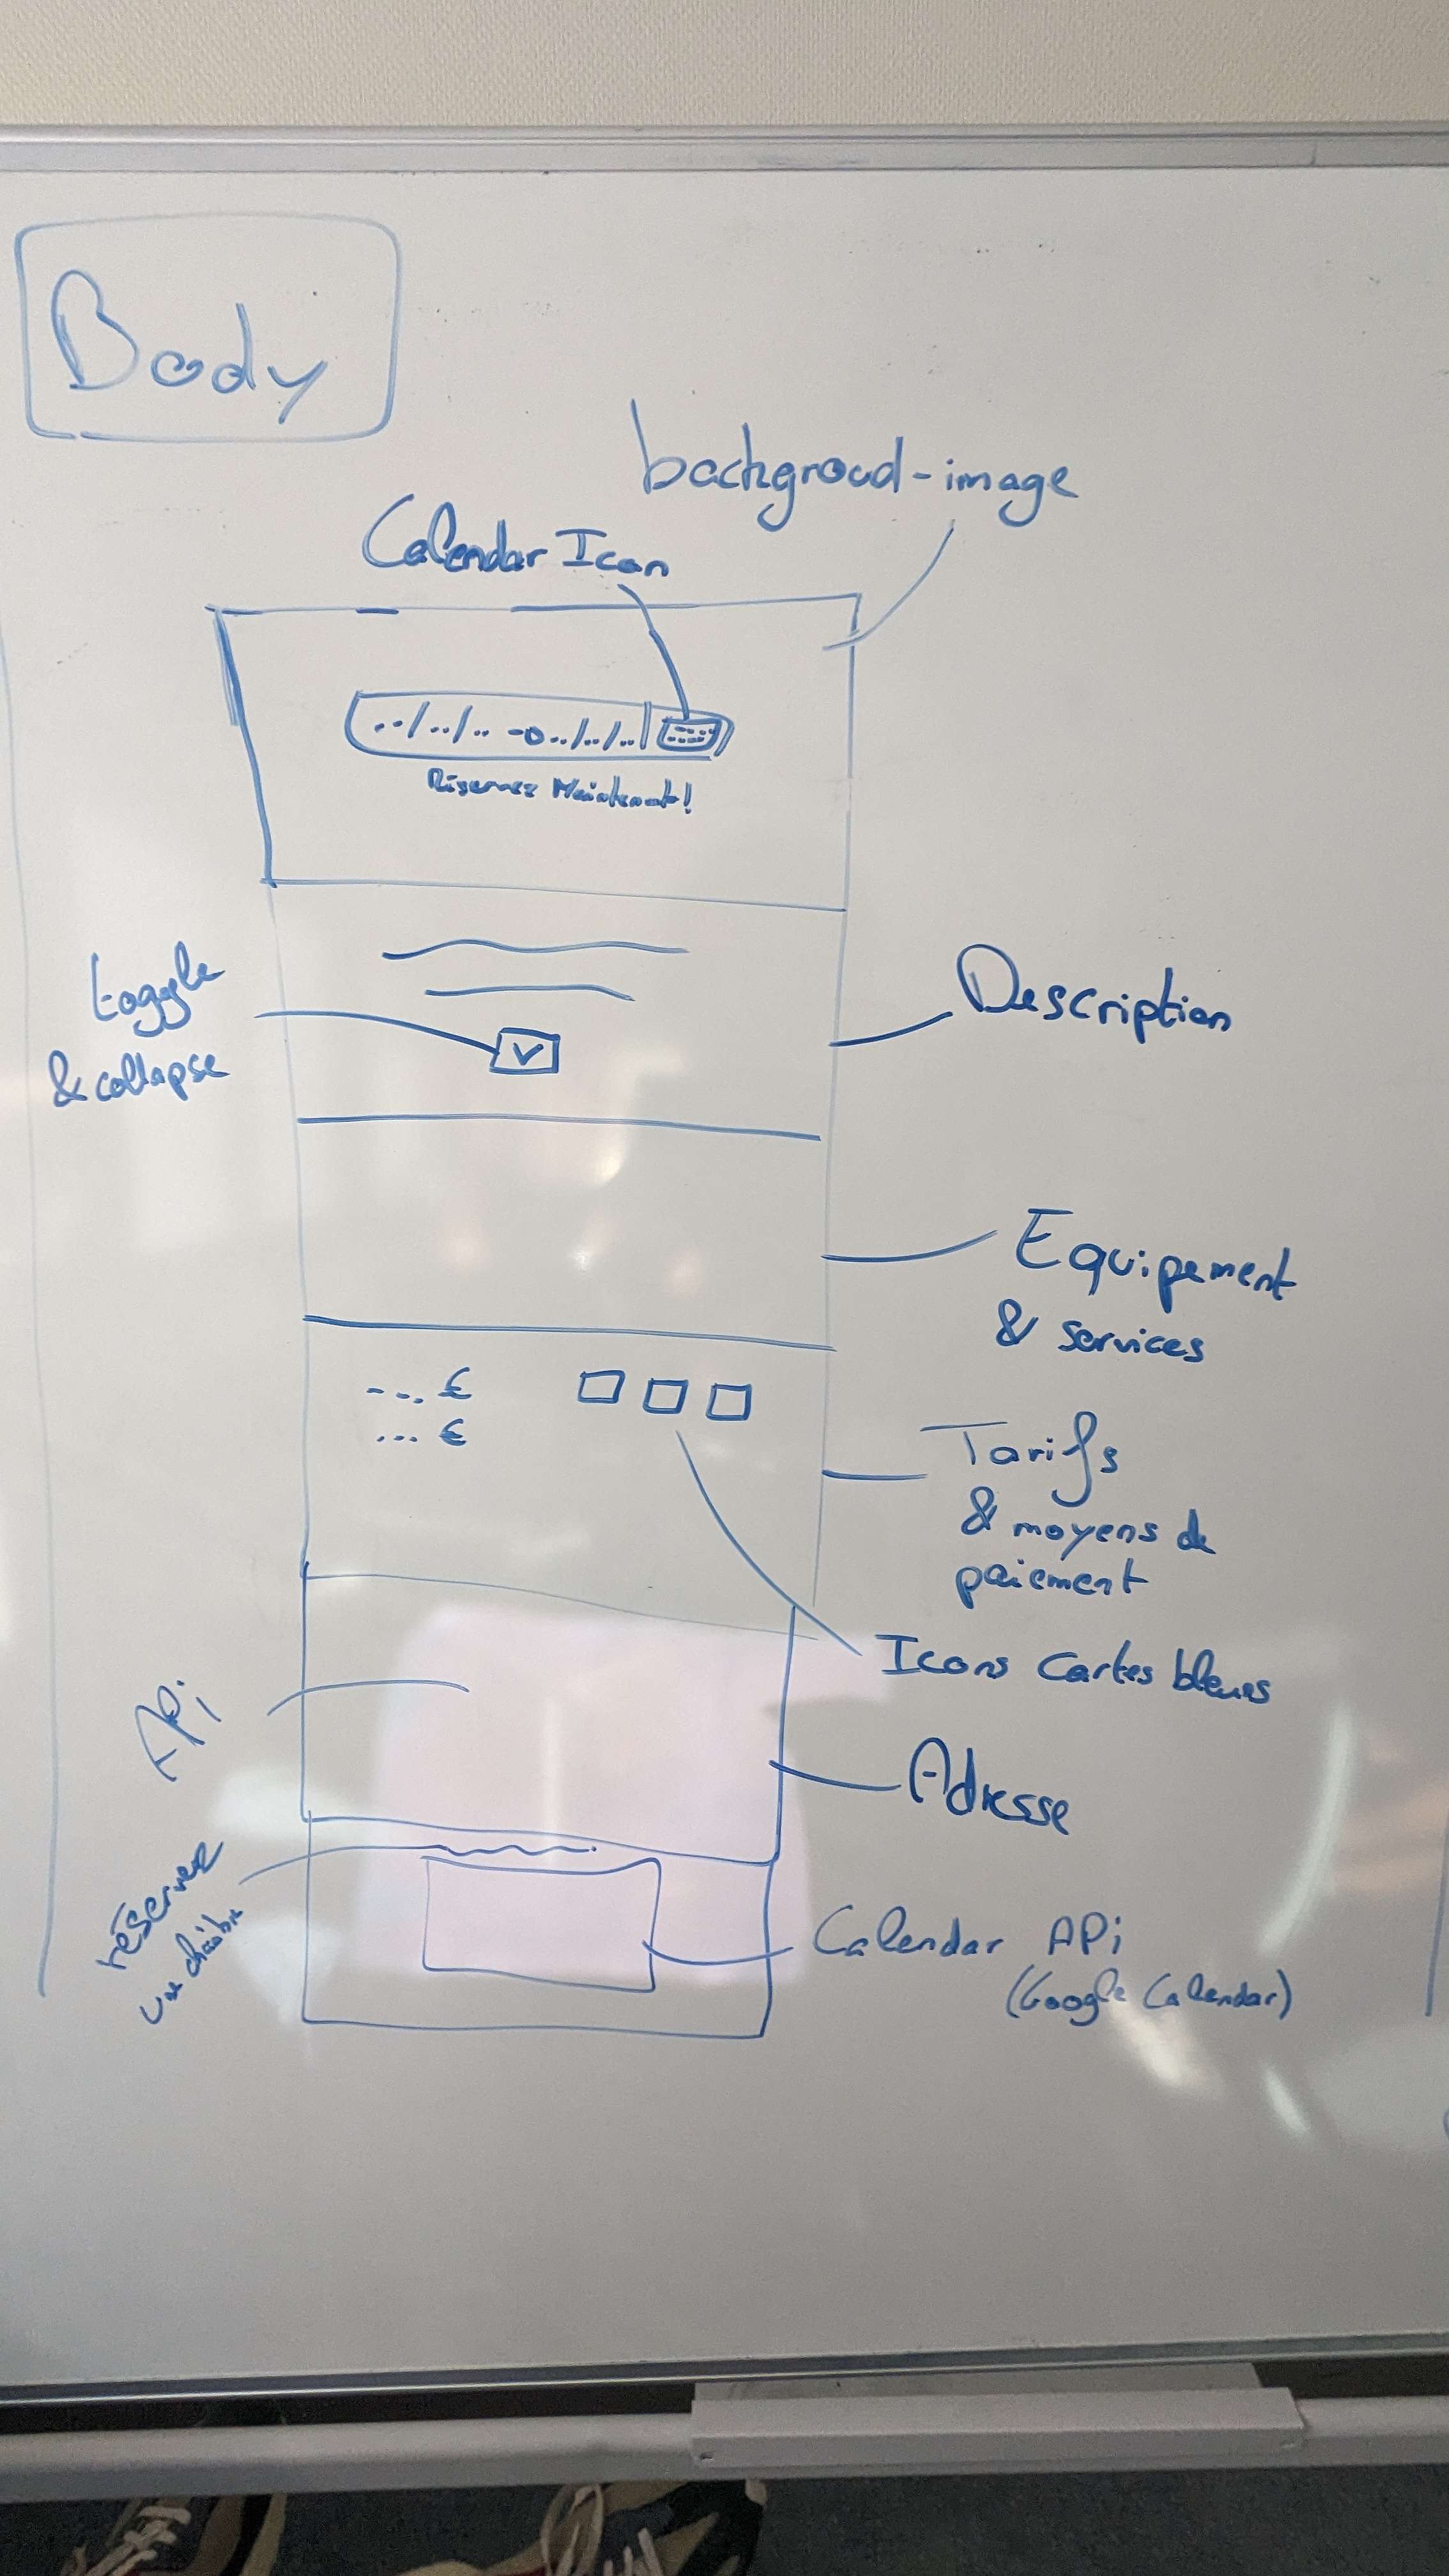 Body
backgroud-image
Calendar Icon
../../.. -o ../../..
Réservez Maintenant!
toggle
& collapse
Description
Equipement
& services
--. €
... €
Tarifs
& moyens de
paiement
Icons Cartes bleues
API
Adresse
réservez
une chambre
Calendar APi
(Google Calendar)